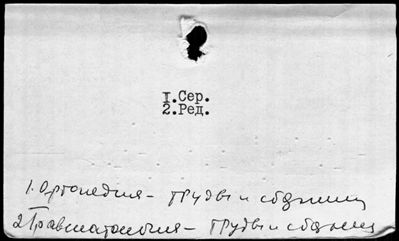 I.Сер.
2.Ред.
1. Ортопедия - труды и сборники
2. Травматология - труды и сборники